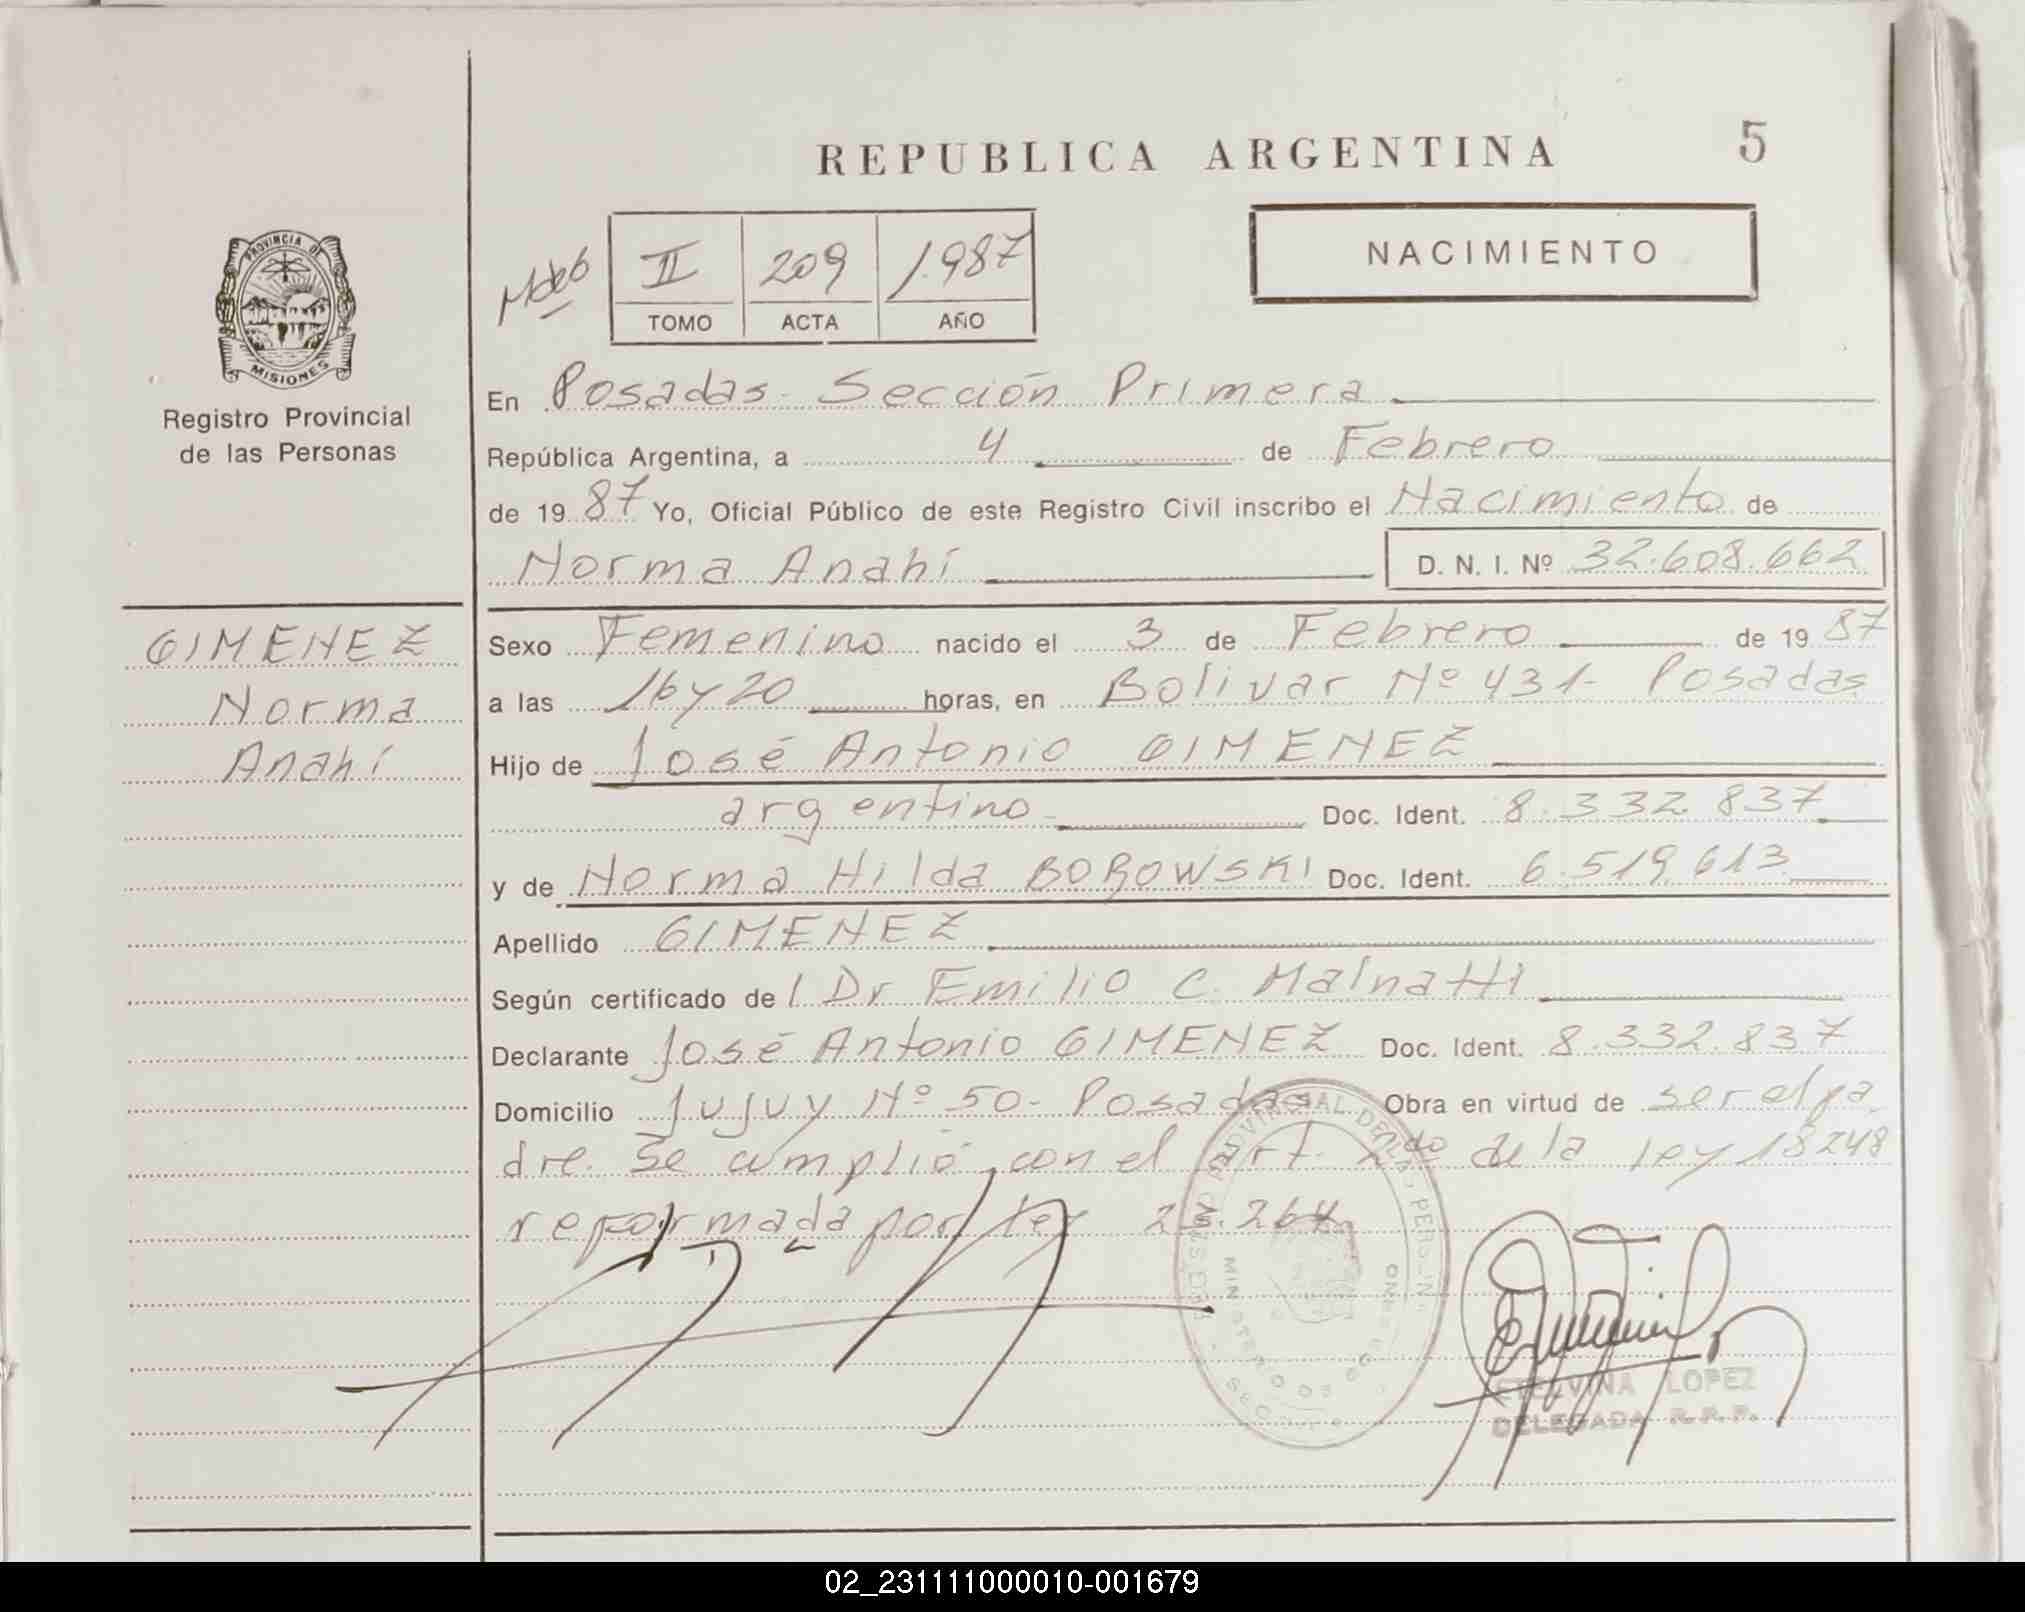 REPUBLICA ARGENTINA
5
NACIMIENTO
II 209 1.987
TOMO ACTA AÑO
PROVINCIA DE
MISIONES
Registro Provincial
de las Personas
GIMENEZ
Norma
Anahí
En Posadas- Sección Primera
República Argentina, a 4 de Febrero
de 1987 Yo, Oficial Público de este Registro Civil inscribo el Nacimiento de
Norma Anahí D. N. I. Nº 32.608.662
Sexo Femenino nacido el 3 de Febrero de 1987
a las 16 y 20 horas, en Bolivar Nº 431- Posadas
Hijo de José Antonio GIMENEZ
argentino- Doc. Ident. 8.332.837
y de Norma Hilda BOROWSKI Doc. Ident. 6.519.613
Apellido GIMENEZ
Según certificado de l Dr Emilio C. Malnatti
Declarante José Antonio GIMENEZ Doc. Ident. 8.332.837
Domicilio Jujuy Nº 50- Posadas Obra en virtud de ser el pa
dre. Se cumplió con el Art. 2do de la ley 18248
reformada por ley 23.264
ETELVINA LOPEZ
DELEGADA R.P.P.
02_231111000010-001679